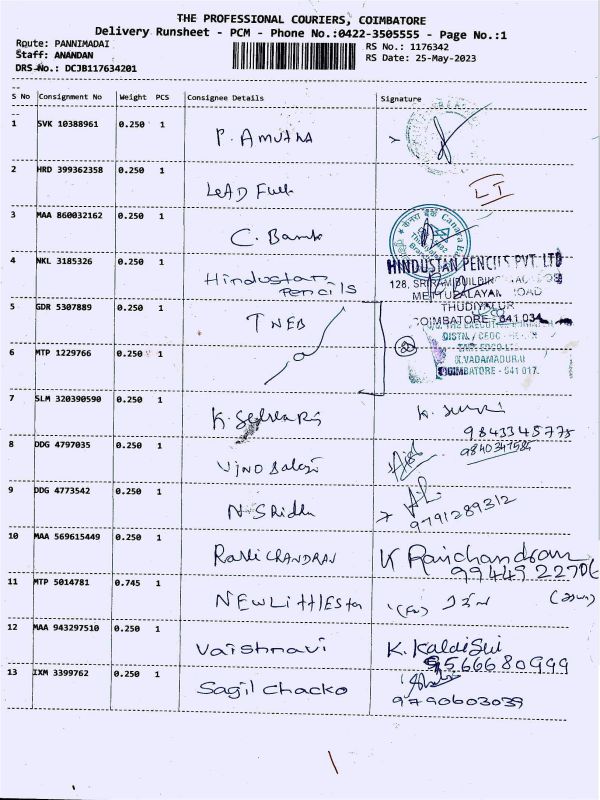 THE PROFESSIONAL COURIERS, COIMBATORE
Delivery Runsheet - PCM - Phone No.:0422-3505555 - Page No.:1
Route: PANNIMADAI
Staff: ANANDAN
DRS No.: DCJB117634201
RS No.: 1176342
RS Date: 25-May-2023
S No Consignment No Weight PCS Consignee Details Signature
1 SVK 10388961 0.250 1 P. AMUTHA
2 HRD 399362358 0.250 1 LEAD Fuel LI
3 MAA 860032162 0.250 1 C. Bank
4 NKL 3185326 0.250 1 Hindustan Pencils
HINDUSTAN PENCILS PVT. LTD
128, SRIRAM BUILDING
METTUPALAYAM ROAD
THUDIYALUR
COIMBATORE - 641 034
5 GDR 5307889 0.250 1 TNEB
6 MTP 1229766 0.250 1
K.VADAMADURAI
COIMBATORE - 641 017.
7 SLM 320390590 0.250 1 K.
9843345775
8 DDG 4797035 0.250 1 Vino Balaji
9840347584
9 DDG 4773542 0.250 1 N. Sridhar
9791289312
10 MAA 569615449 0.250 1 RAVICHANDRAN K Ravichandran
9944922706
11 MTP 5014781 0.745 1 NEW Little Star
12 MAA 943297510 0.250 1 Vaishnavi K. Kalaiselvi
9566680999
13 IXM 3399762 0.250 1 Sagil Chacko
9790603039